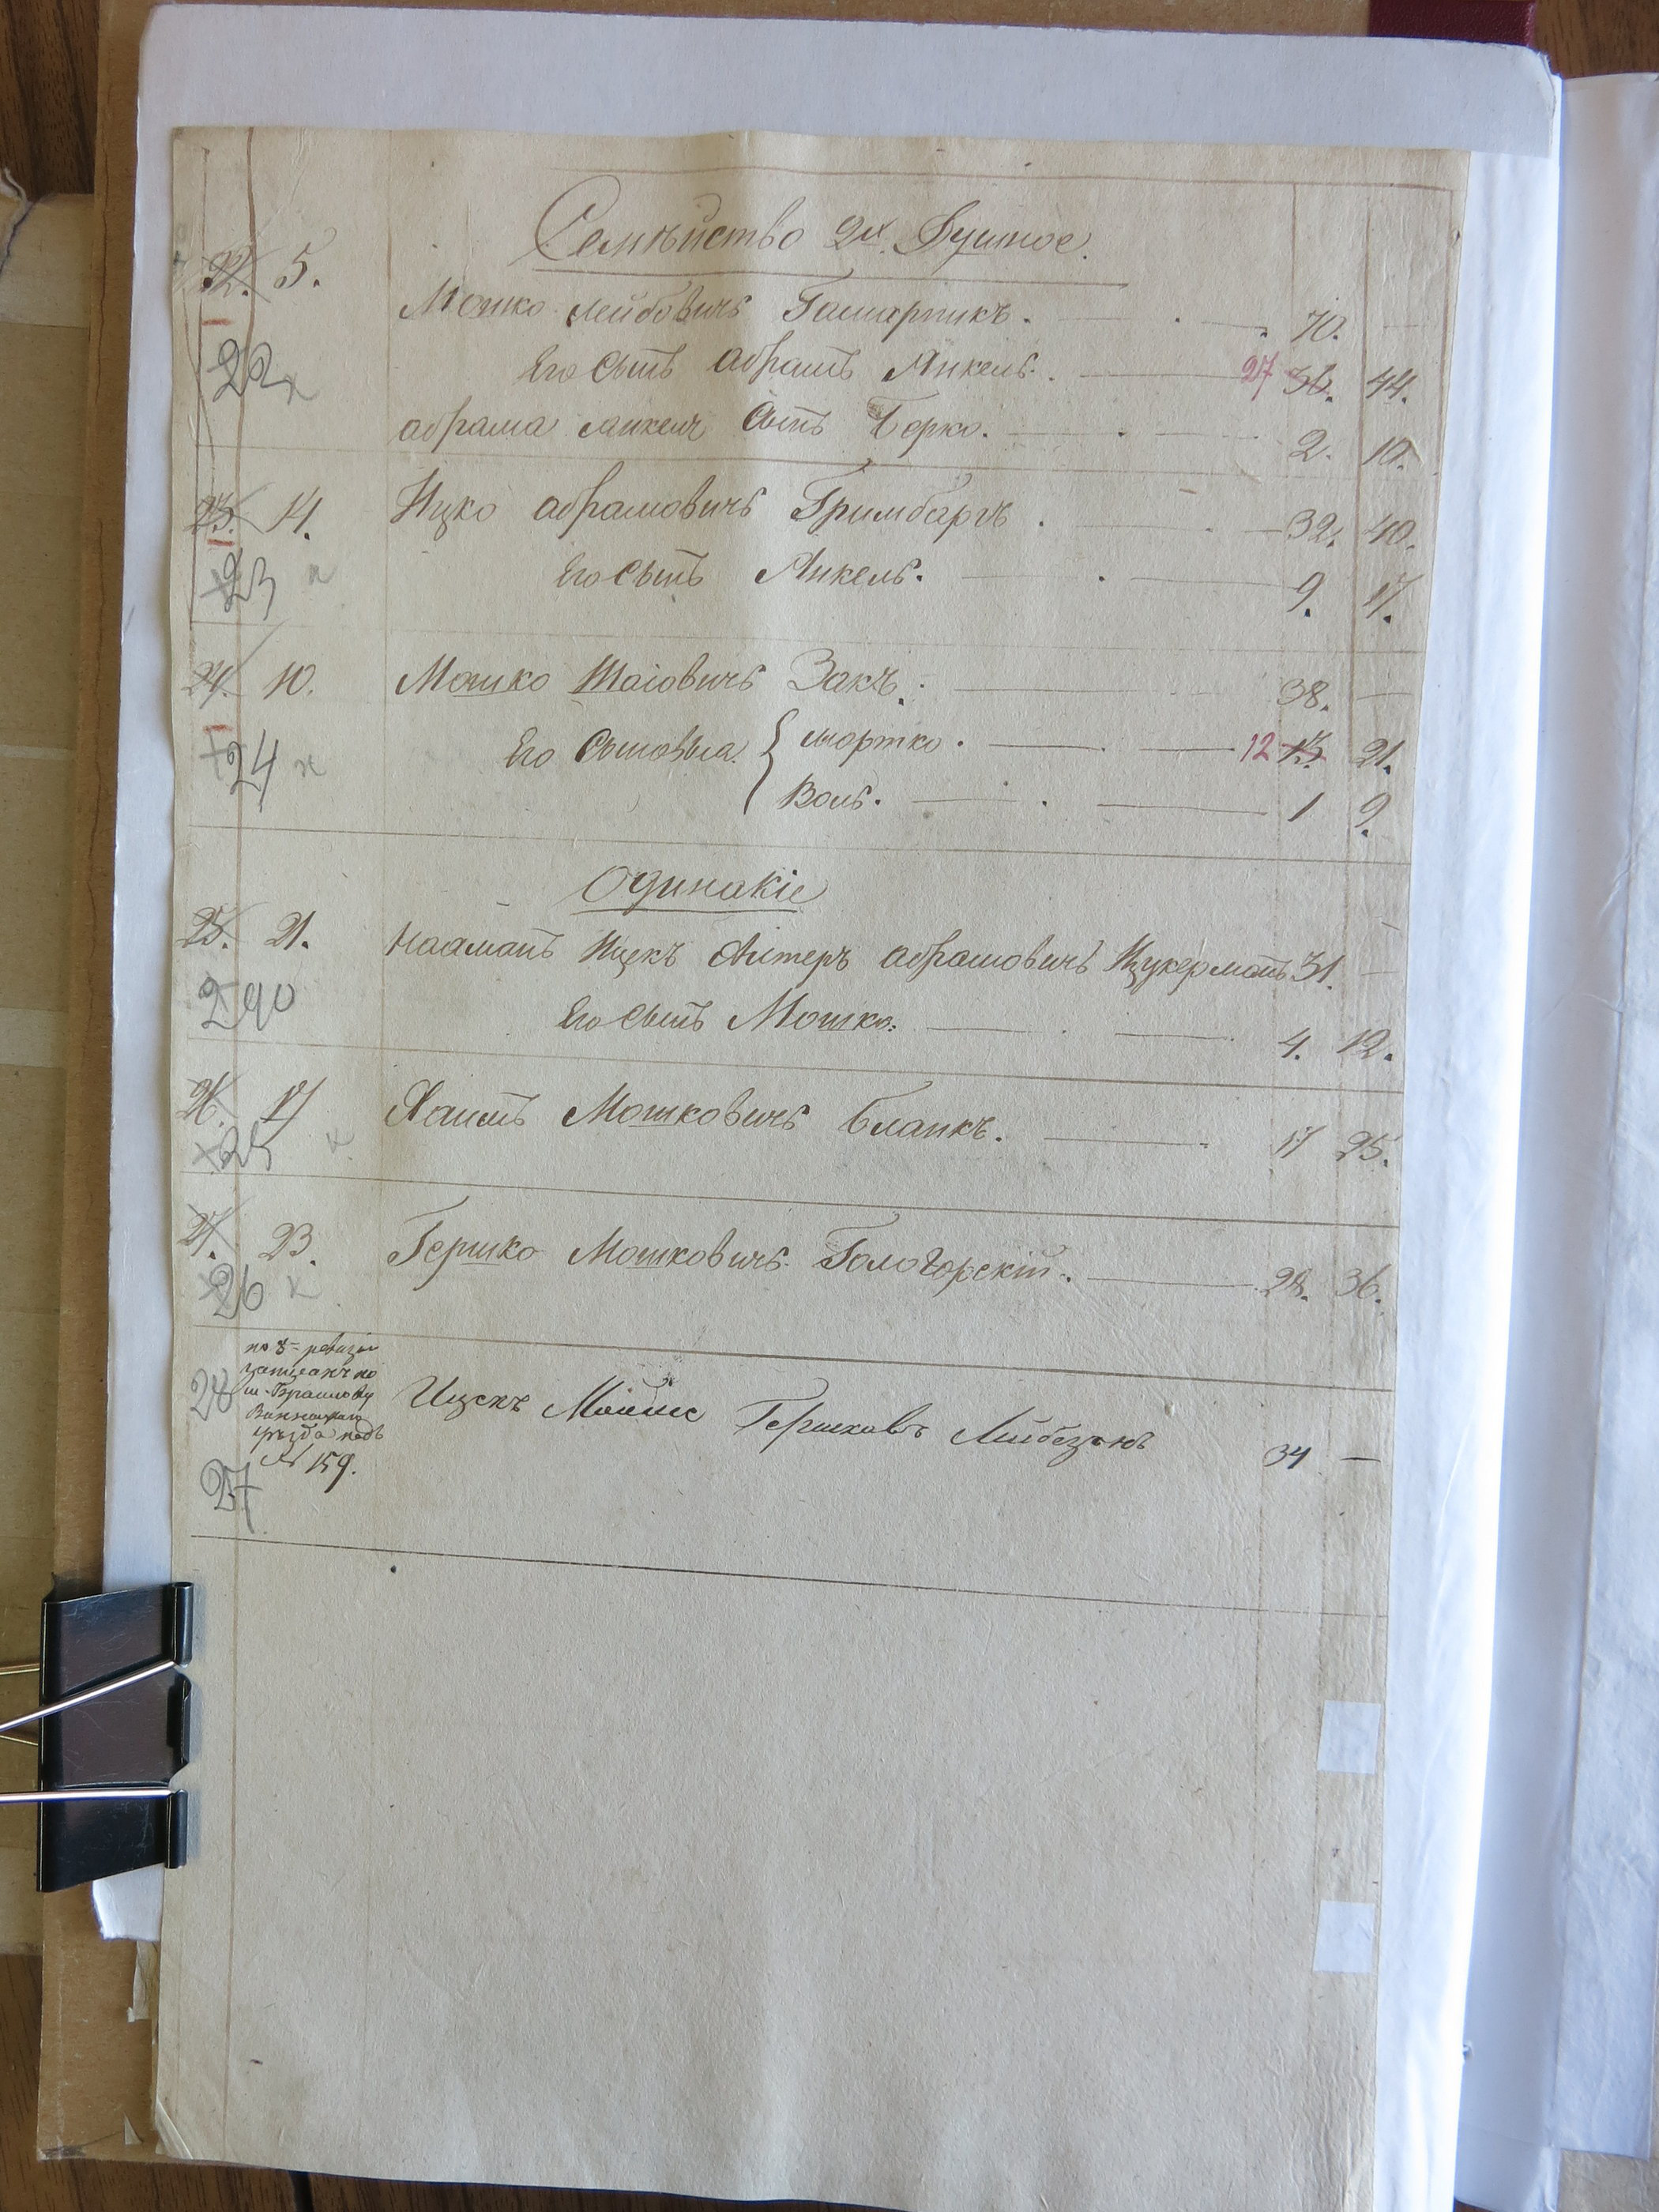 Семейство 2х. Душное.
22. 5. Мошко Лейбовичъ Гамарникъ. 70. —
22 х Его Сынъ Абрамъ Янкель. 27 36. 44.
Абрама Янкеля Сынъ Берко. 2. 10.
23. 14. Ицко Абрамовичъ Гримбаргъ. 32. 40.
23 х Его Сынъ Янкель. 9. 17.
24. 10. Мошко Шаіовичъ Закъ. 38. —
24 х Его Сыновья { Мортко. 12 13. 21.
Воль. 1 9.
Одинакіе
25. 21. Нааманъ Ицекъ Алтеръ Абрамовичъ Цукерманъ 31. —
290 Его Сынъ Мошко. 4. 12.
26. 17 Хаимъ Мошковичъ Бланкъ. 17 25.
25 х
27. 23. Гершко Мошковичъ Гологорскій. 28. 36.
26 х
по 8 ревизіи
записанъ по
м. Браилову
Винницкаго
уѣзда подъ
№ 159.
28 Ицекъ Мойше Гершковъ 34 —
27